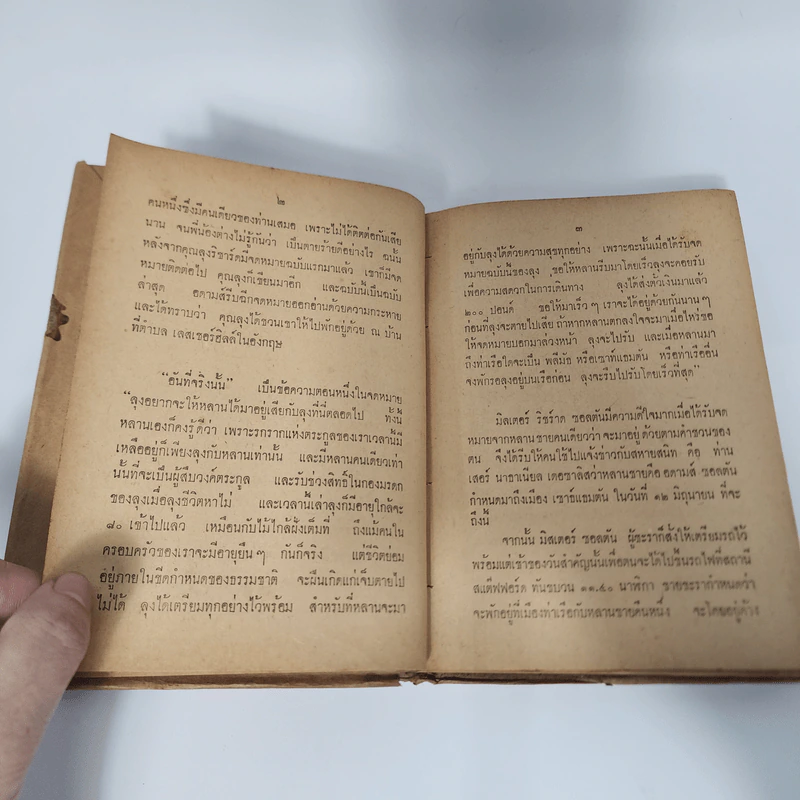 ๒
คนหนึ่งซึ่งมีคนเดียวของท่านเสมอ เพราะไม่ได้ติดต่อกันเสีย
นาน จนพี่น้องต่างไม่รู้กันว่า เป็นตายร้ายดีอย่างไร ฉนั้น
หลังจากคุณลุงริชาร์ดมีจดหมายฉบับแรกมาแล้ว เขาก็มีจด
หมายติดต่อไป คุณลุงก็เขียนมาอีก และฉบับนี้เป็นฉบับ
ล่าสุด อดามส์รีบฉีกจดหมายออกอ่านด้วยความกระหาย
และได้ทราบว่า คุณลุงได้ชวนเขาให้ไปพักอยู่ด้วย ณ บ้าน
ที่ตำบล เลสเชอร์ฮิลล์ในอังกฤษ
“อันที่จริงนั้น” เป็นข้อความตอนหนึ่งในจดหมาย
“ลุงอยากจะให้หลานได้มาอยู่เสียกับลุงที่นี่ตลอดไป ทั้งนี้
หลานเองก็คงรู้ดีว่า เพราะรกรากแห่งตระกูลของเราเวลานี้มี
เหลืออยู่ก็เพียงลุงกับหลานเท่านั้น และมีหลานคนเดียวเท่า
นั้นที่จะเป็นผู้สืบวงศ์ตระกูล และรับช่วงสิทธิ์ในกองมรดก
ของลุงเมื่อลุงชีวิตหาไม่ และเวลานี้เล่าลุงก็มีอายุใกล้จะ
๘๐ เข้าไปแล้ว เหมือนกับไม้ใกล้ฝั่งเต็มที่ ถึงแม้คนใน
ครอบครัวของเราจะมีอายุยืน ๆ กันก็จริง แต่ชีวิตย่อม
อยู่ภายในขีดกำหนดของธรรมชาติ จะฝืนเกิดแก่เจ็บตายไป
ไม่ได้ ลุงได้เตรียมทุกอย่างไว้พร้อม สำหรับที่หลานจะมา
๓
อยู่กับลุงได้ด้วยความสุขทุกอย่าง เพราะฉะนั้นเมื่อได้รับจด
หมายฉบับนี้ของลุง ขอให้หลานรีบมาโดยเร็วลุงจะคอยรับ
เพื่อความสดวกในการเดินทาง ลุงได้ส่งตั๋วเงินมาแล้ว
๒๐๐ ปอนด์ ขอให้มาเร็ว ๆ เราจะได้อยู่ด้วยกันนาน ๆ
ก่อนที่ลุงจะตายไปเสีย ถ้าหากหลานตกลงใจจะมาเมื่อไหร่ขอ
ให้จดหมายบอกมาล่วงหน้า ลุงจะไปรับ และเมื่อหลานมา
ถึงท่าเรือใดจะเป็น พลีมัธ หรือเซาท์แธมตัน หรือท่าเรืออื่น
จงพักรอลุงอยู่บนเรือก่อน ลุงจะรีบไปรับโดยเร็วที่สุด”
มิสเตอร์ ริชร์าด ซอลตันมีความดีใจมากเมื่อได้รับจด
หมายจากหลานชายคนเดียวว่าจะมาอยู่ด้วยตามคำชวนของ
ตน จึงได้รีบให้คนใช้ไปแจ้งข่าวกับสหายสนิท คือ ท่าน
เสอร์ นาธาเนียล เดอซาลิสว่าหลานชายคืออดามส์ ซอลตัน
กำหนดมาถึงเมือง เซาธ์แธมตัน ในวันที่ ๑๒ มิถุนายน ที่จะ
ถึงนี้
จากนั้น มิสเตอร์ ซอลตัน ผู้ชะราก็สั่งให้เตรียมรถไว้
พร้อมแต่เช้าของวันสำคัญนั้นเพื่อตนจะได้ไปขึ้นรถไฟที่สถานี
สแต๊ฟฟอร์ด ทันขบวน ๑๑.๔๐ นาฬิกา ชายชะรากำหนดว่า
จะพักอยู่ที่เมืองท่าเรือกับหลานชายคืนหนึ่ง จะโดยอยู่ค้าง